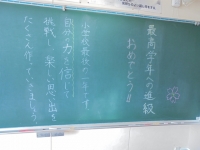 最高学年への進級
おめでとう!!
小学校最後の一年です。
自分の力を信じて
挑戦し、楽しい思い出を
たくさん作っていきましょう